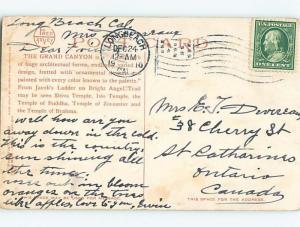 Long Beach Cal
Mrs
Dear
POST CARD
THE GRAND CANYON is
of huge architectural forms,
design, fretted with ornamental
painted with every color of the
From Jacob's Ladder on Bright Angel Trail
may be seen Shiva Temple, Isis Temple, the
Temple of Buddha, Temple of Zoroaster and
the Temple of Brahma.
well how are you
away down in the cold.
This is the country
sun shining all
the time.
rose out in bloom
oranges on the trees
like apples love to you,
LONG BEACH
DEC 24
12-AM
1910
CAL.
U.S. POSTAGE
ONE CENT
Mrs E. J. Devereaux
38 Cherry St
St Catharines
Ontario
Canada
THIS SPACE FOR THE ADDRESS.